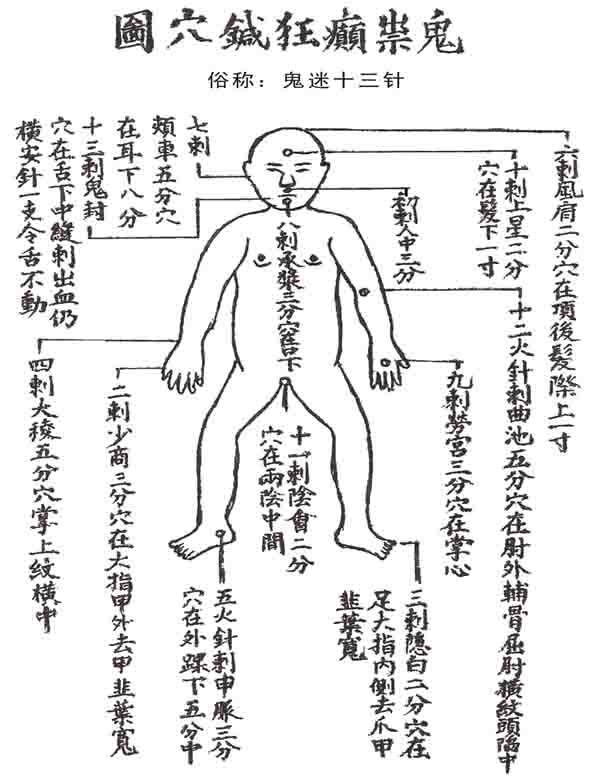 鬼祟癲狂鍼穴圖
俗称：鬼迷十三针
六刺風府二分穴在項後髮際上一寸
十刺上星二分
穴在髮下一寸
十二火針刺曲池五分穴在肘外輔骨屈肘橫紋頭陷中
初刺人中三分
九刺勞宮三分穴在掌心
三刺隱白二分穴在
足大指內側去爪甲
韮葉寬
八刺承漿三分穴唇下
十一刺陰會二分
穴在兩陰中間
七刺
頰車五分穴
在耳下八分
十三刺鬼封
穴在舌下中縫刺出血仍
橫安針一支令舌不動
五火針刺申脈三分
穴在外踝下五分中
二刺少商三分穴在大指甲外去甲韮葉寬
四刺大稜五分穴掌上紋橫中